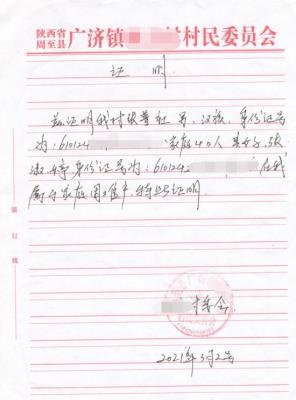 陕西省
周至县 广济镇 村村民委员会
证明
兹证明我村张尊社 男、汉族、身份证号
为:610124 家庭4口人 其女子张
淑婷 身份证号为:6101242 在我
属于家庭困难户,特此证明
村委会
2021年3月2号
装订线